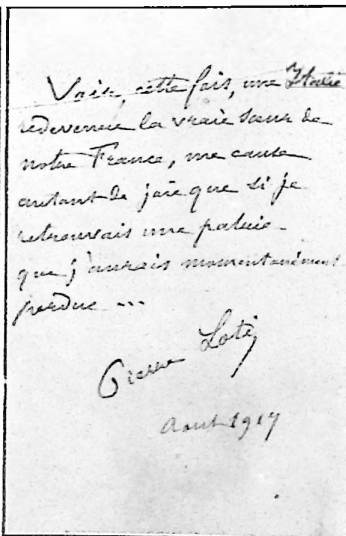 Voir, cette fois, une Italie
redevenue la vraie sœur de
notre France, me cause
autant de joie que si je
retrouvais une patrie
que j'aurais momentanément
perdue ...
Pierre Loti
Aout 1917